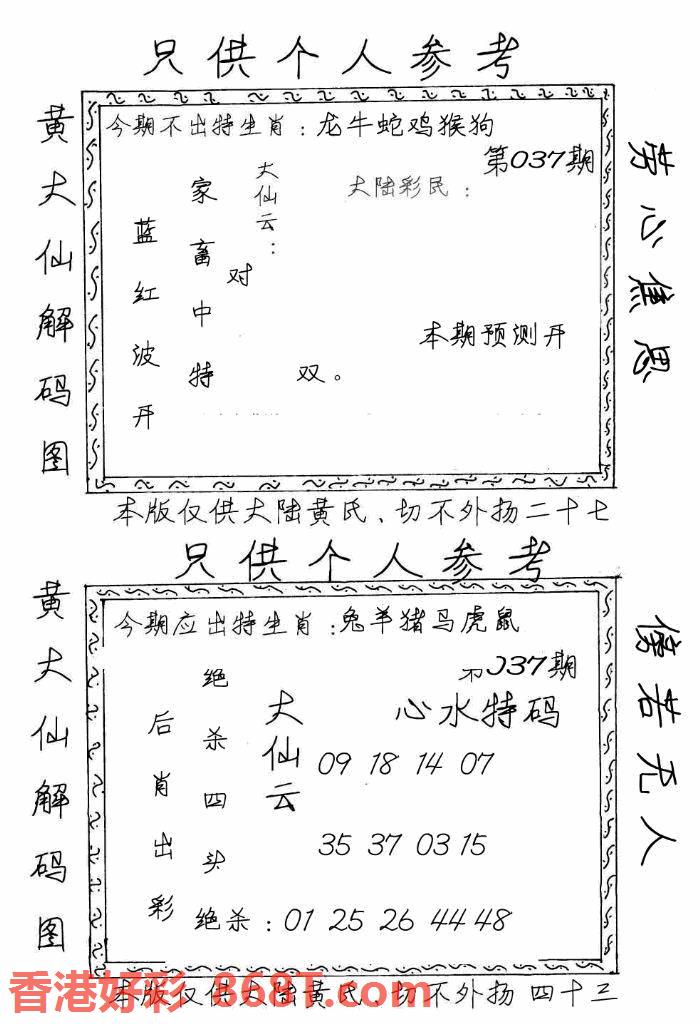 只供个人参考
黄大仙解码图
今期不出特生肖：龙牛蛇鸡猴狗
第037期
大陆彩民：
大仙云：
家畜中特
蓝红波开
对
双。
本期预测开
劳心焦思
本版仅供大陆黄氏、切不外扬二十七
只供个人参考
黄大仙解码图
今期应出特生肖：兔羊猪马虎鼠
037期
心水特码
大仙云
绝杀四头
后肖出彩
09 18 14 07
35 37 03 15
绝杀：01 25 26 44 48
傍若无人
本版仅供大陆黄氏、切不外扬 四十三
香港好彩 868T.com